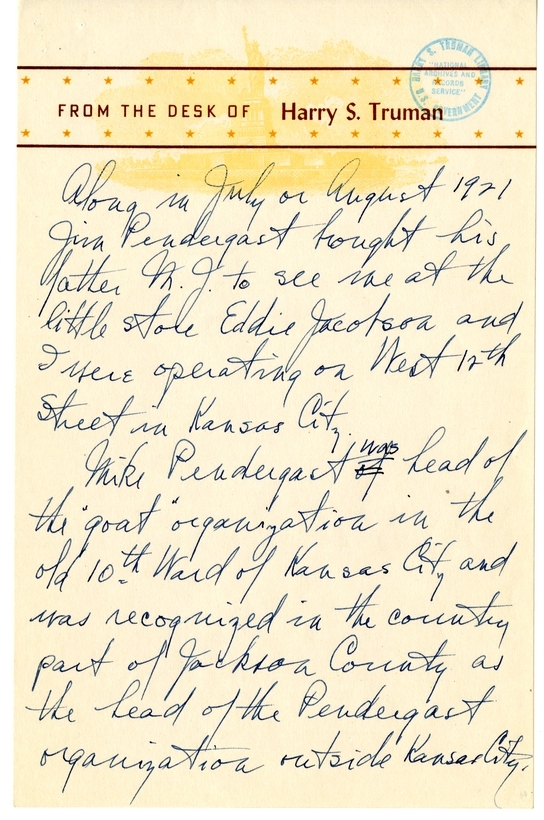 HARRY S. TRUMAN LIBRARY
"NATIONAL
ARCHIVES AND
RECORDS
SERVICE"
U.S. GOVERNMENT
FROM THE DESK OF Harry S. Truman
Along in July or August 1921
Jim Pendergast bought his
father M. J. to see me at the
little store Eddie Jacobson and
I were operating on West 12th
Street in Kansas City.
Mike Pendergast was head of
the "goat" organization in the
old 10th Ward of Kansas City and
was recognized in the country
part of Jackson County as
the head of the Pendergast
organization outside Kansas City.